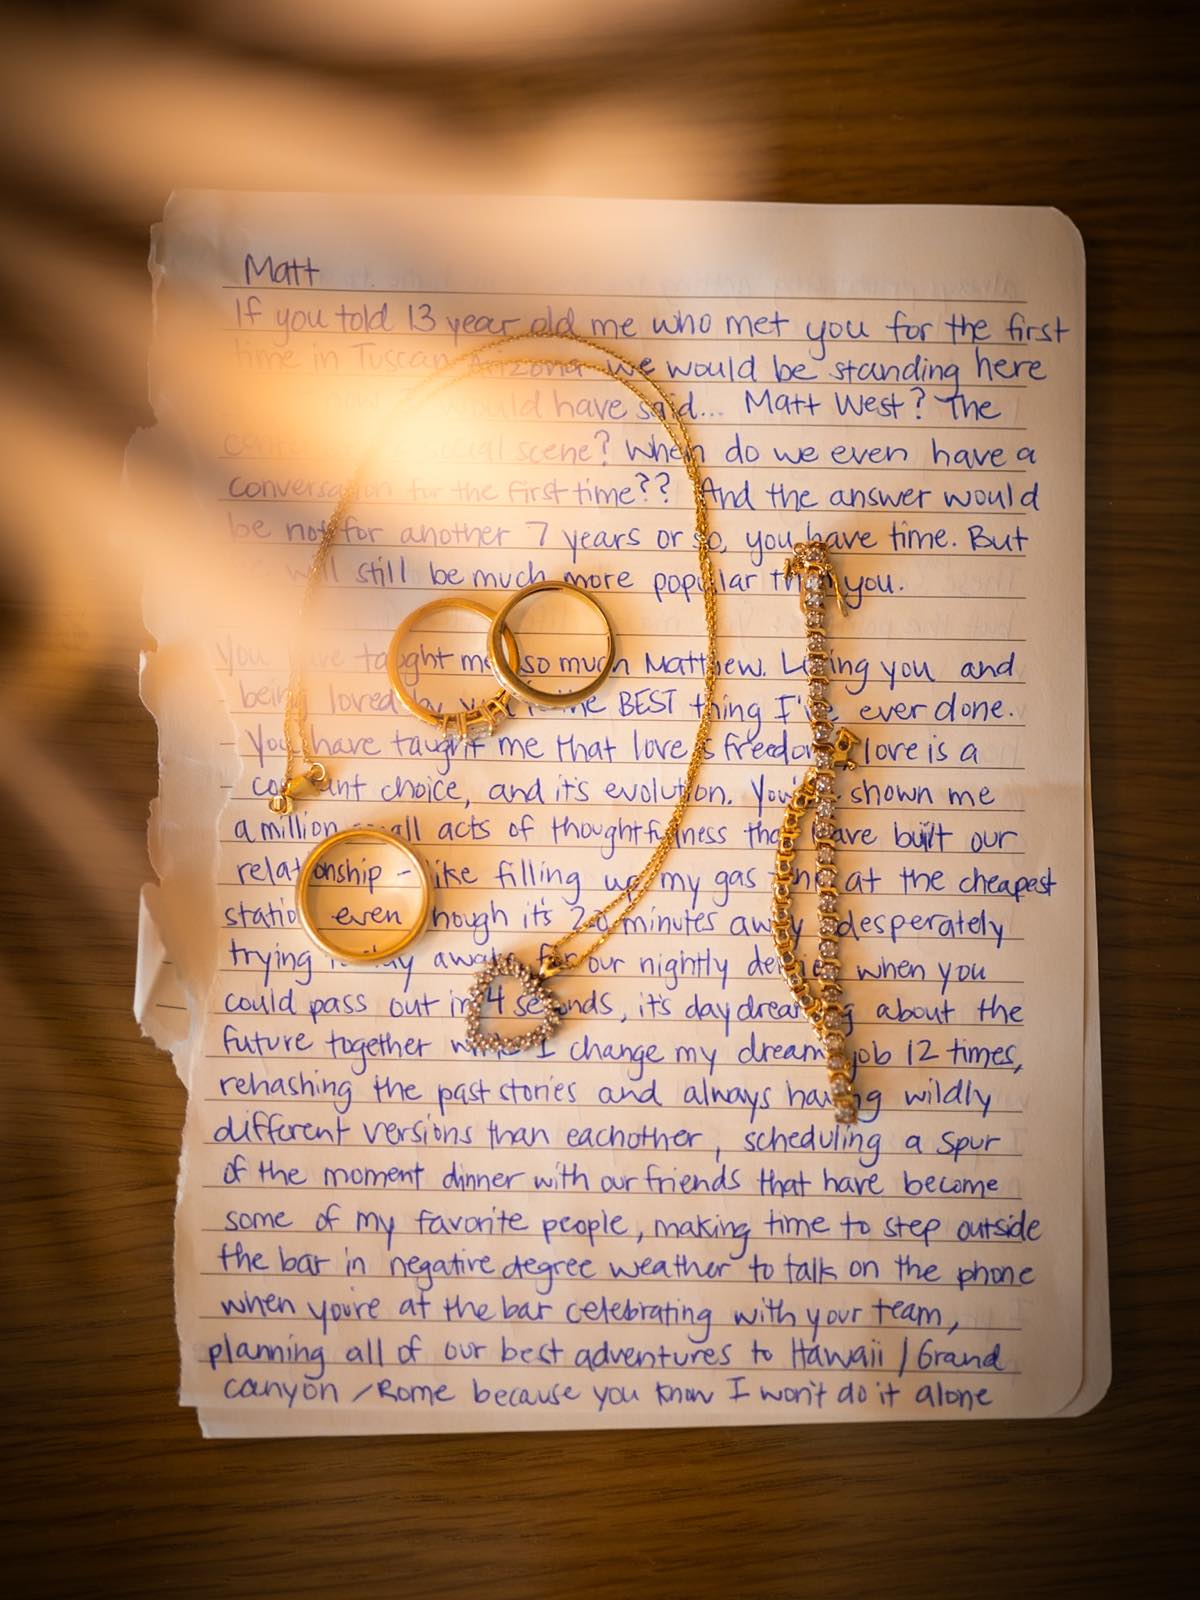 Matt
If you told 13 year old me who met you for the first
time in Tuscan Arizona we would be standing here
now would have said... Matt West? The
social scene? When do we even have a
conversation for the first time?? And the answer would
be not for another 7 years or so, you have time. But
will still be much more popular than you.
You have taught me so much Matthew. Loving you and
being loved by you is the BEST thing I've ever done.
You have taught me that love is freedom, love is a
constant choice, and it's evolution. You've shown me
a million small acts of thoughtfulness that have built our
relationship - like filling up my gas at the cheapest
station even though it's 20 minutes away, desperately
trying to stay awake for our nightly when you
could pass out in 4 seconds, it's daydreaming about the
future together while I change my dream job 12 times,
rehashing the past stories and always having wildly
different versions than eachother, scheduling a spur
of the moment dinner with our friends that have become
some of my favorite people, making time to step outside
the bar in negative degree weather to talk on the phone
when you're at the bar celebrating with your team,
planning all of our best adventures to Hawaii / Grand
canyon / Rome because you know I won't do it alone